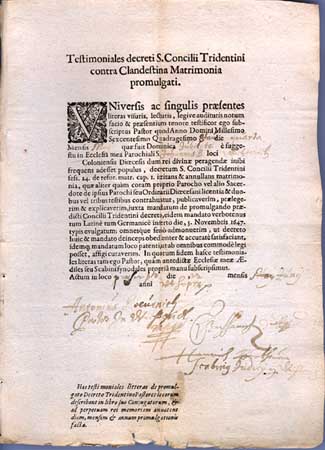 Testimoniales decreti S. Concilii Tridentini
contra Clandestina Matrimonia
promulgati.
VNiversis ac singulis præsentes
literas visuris, lecturis, legive audituris notum
facio & præsentium tenore testificor ego sub-
scriptus Pastor quod Anno Domini Millesimo
Sexcentesimo Quadragesimo die
Mensis quæ fuit Dominica è sugge-
stu in Ecclesia mea Parochiali S. loci
Coloniensis Diœcesis dum rei divinæ peragendæ inibi
frequens adesset populus, decretum S. Concilii Tridentini
sess. 24. de refor. matr. cap. 1. irritans & annullans matrimo-
nia, quæ aliter quàm coram proprio Parocho vel alio Sacer-
dote de ipsius Parochi seu Ordinarii Diœcesani licentia & duo-
bus vel tribus testibus contrahuntur, publicaverim, prælege-
rim & explicaverim, juxta mandatum de promulgando præ-
dicti Concilii Tridentini decreto, eidem mandato verbotenus
tum Latinè tum Germanicè inserto die, 5. Novembris 1647.
typis evulgatum, omnesque serió admonuerim, ut decreto
huic & mandato deinceps obediant & accuratè satisfaciant,
idemq; mandatum loco patenti ab omnibus commodè legi
posset, affigi curaverim. In quorum fidem hasce testimonia-
les literas tam ego Pastor, quàm antedictæ Ecclesiæ meæ Æ-
diles seu Scabini synodales propria manu subscripsimus.
Actum in loco die mensis
anni ut supra
Antonius
Pastor
Henrich
Scabinus
Has testimoniales litteras de promul-
gato Decreto Tridentino Pastores locorum
describent in libro suo Conjugatorum, &
ad perpetuam rei memoriam annotent
diem, mensem & annum promulgationis
factæ.